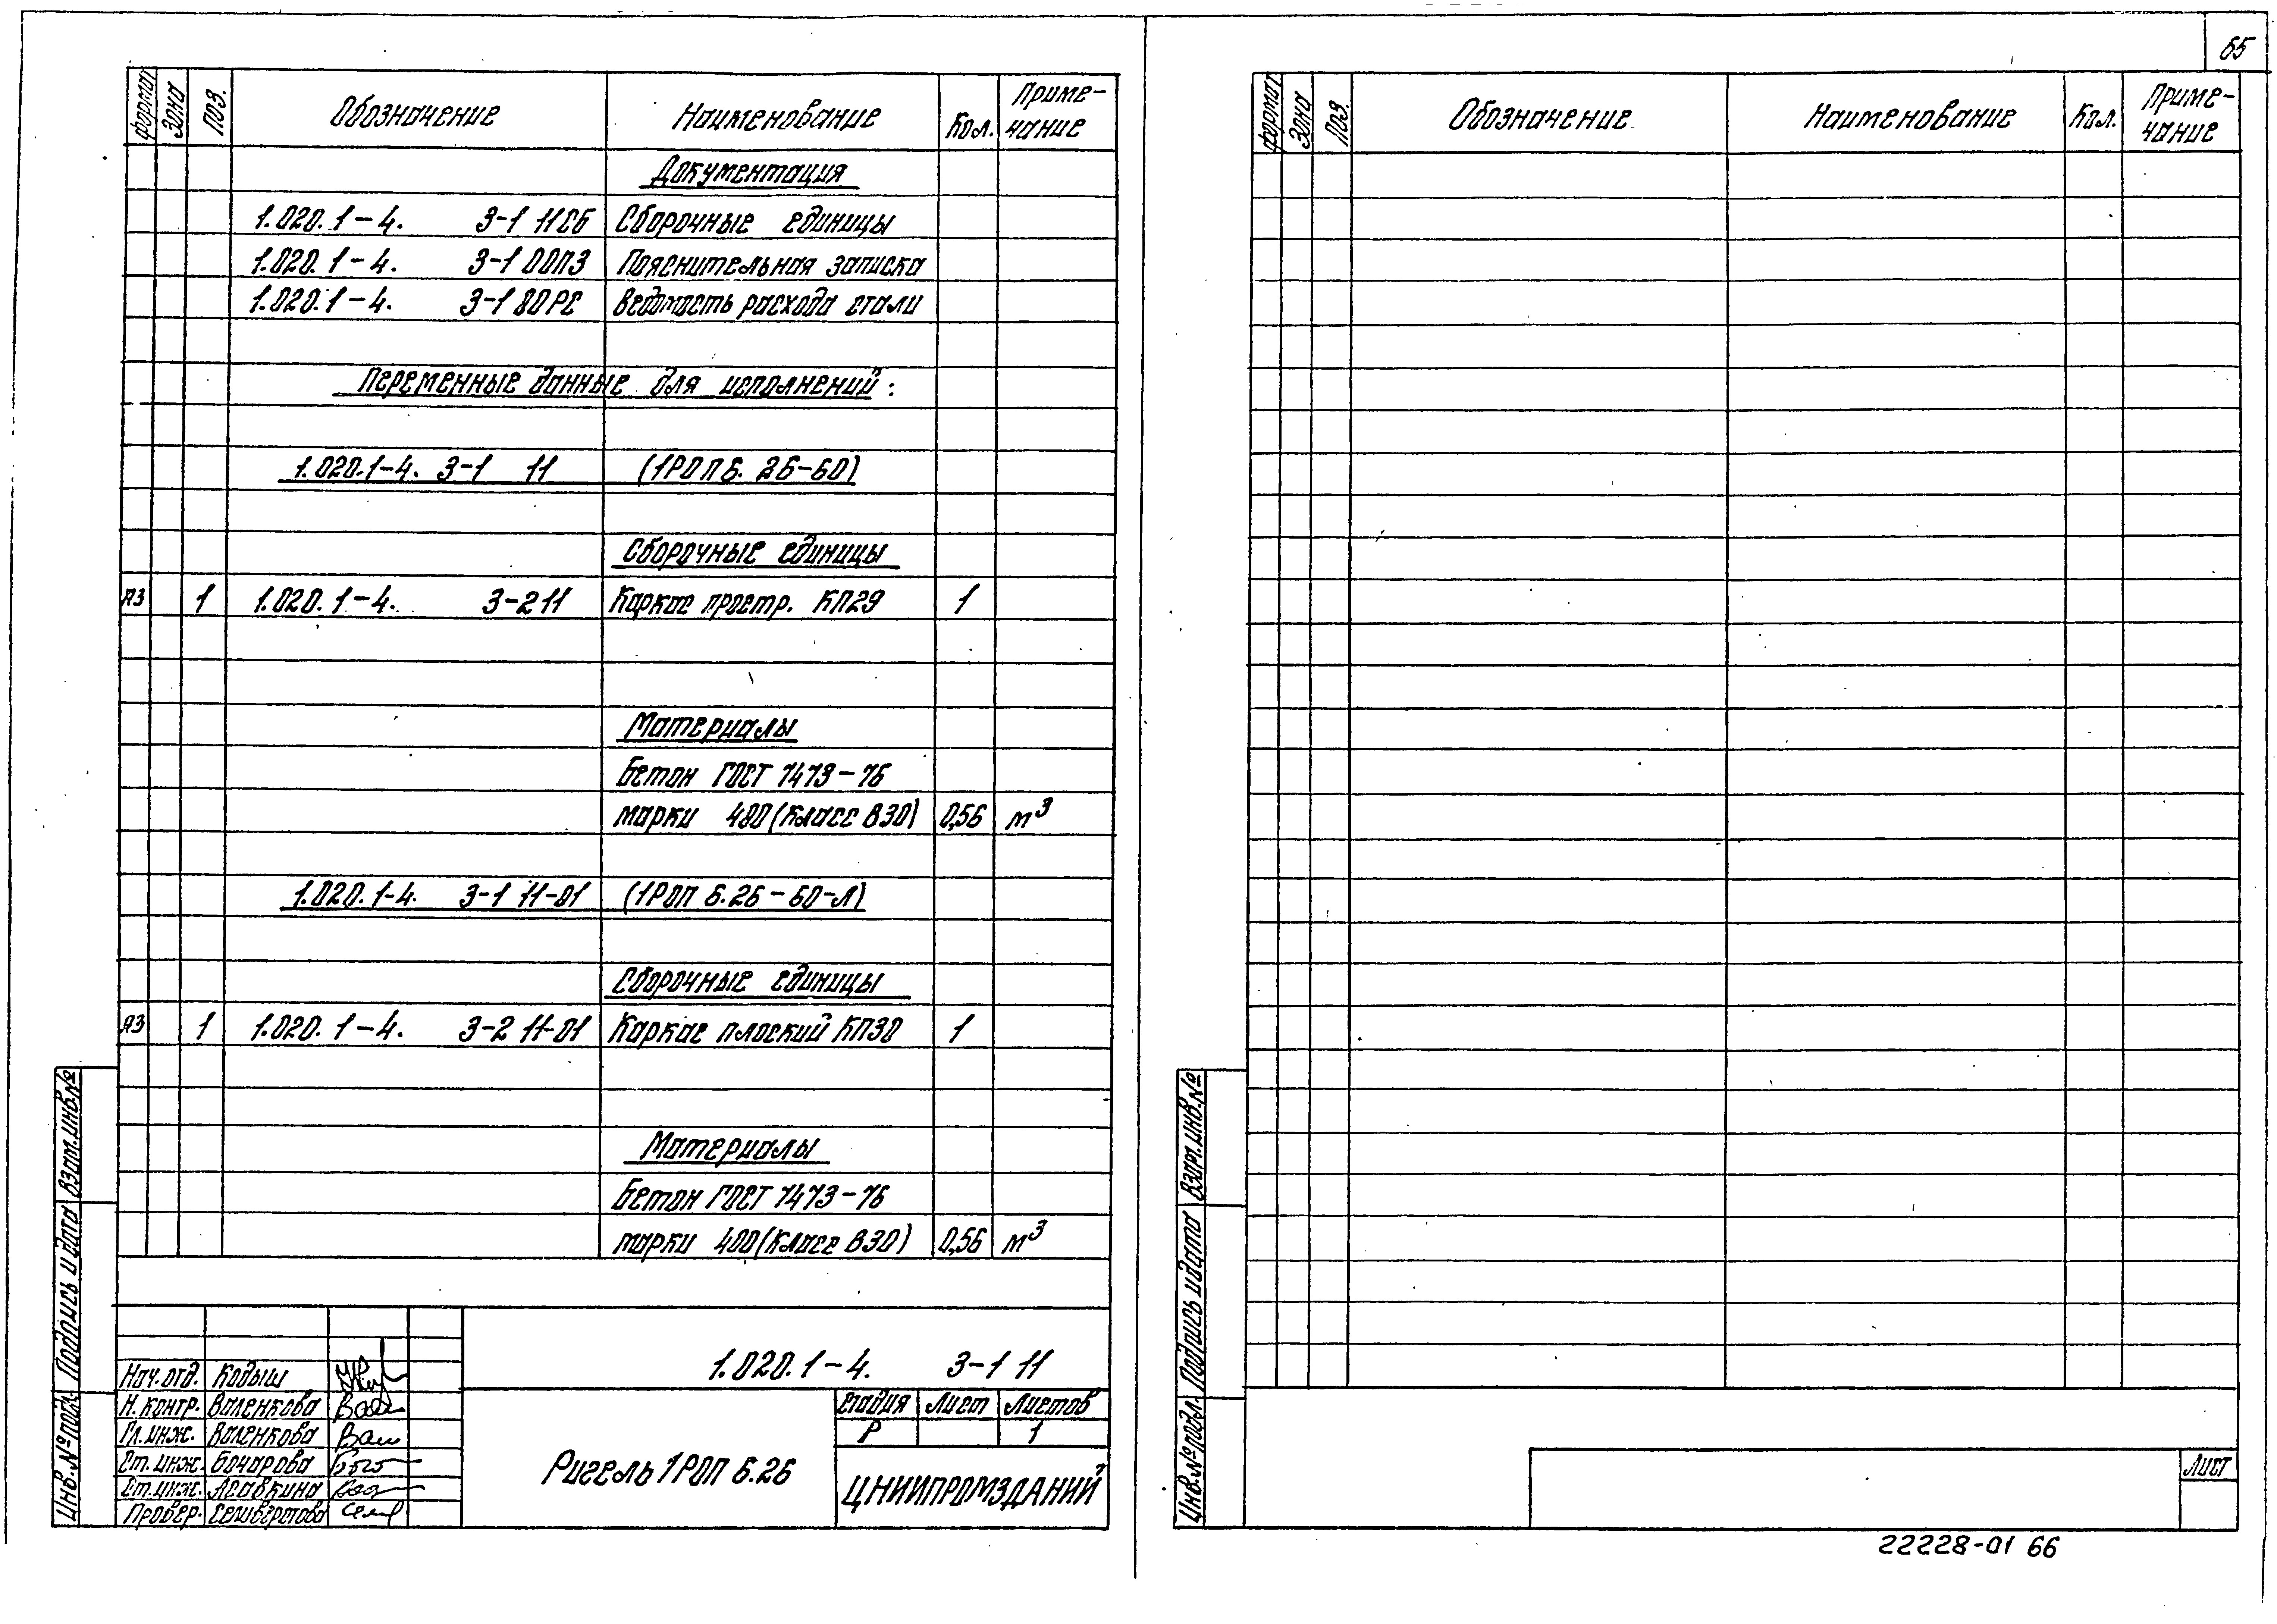 65
формат Зона Поз. Обозначение Наименование Кол. Приме-
чание
Документация
1.020.1-4. 3-1 11СБ Сборочные единицы
1.020.1-4. 3-1 00ПЗ Пояснительная записка
1.020.1-4. 3-1 80РС Ведомость расхода стали
Переменные данные для исполнений:
1.020.1-4. 3-1 11 (1РОП 6.26-60)
Сборочные единицы
А3 1 1.020.1-4. 3-2 11 Каркас простр. КП29 1
Материалы
Бетон ГОСТ 7473-76
марки 400 (Класс В30) 0,56 м³
1.020.1-4. 3-1 11-01 (1РОП 6.26-60-Л)
Сборочные единицы
А3 1 1.020.1-4. 3-2 11-01 Каркас плоский КП30 1
Материалы
Бетон ГОСТ 7473-76
марки 400 (Класс В30) 0,56 м³
Взам.инв.№
Подпись и дата
Инв.№подл.
Нач.отд. Кодыш
Н.контр. Валенкова
Гл.инж. Валенкова
Ст.инж. Бочарова
Ст.инж. Агавкина
Провер. Селиверстова
1.020.1-4. 3-1 11
Ригель 1РОП 6.26
Стадия Лист Листов
Р 1
ЦНИИПРОМЗДАНИЙ
формат Зона Поз. Обозначение Наименование Кол. Приме-
чание
Взам.инв.№
Подпись и дата
Инв.№подл.
Лист
22228-01 66